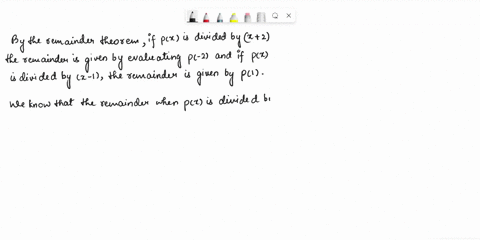 By the remainder theorem, if p(x) is divided by (x+2)
the remainder is given by evaluating p(-2) and if p(x)
is divided by (x-1), the remainder is given by p(1).
We know that the remainder when p(x) is divided